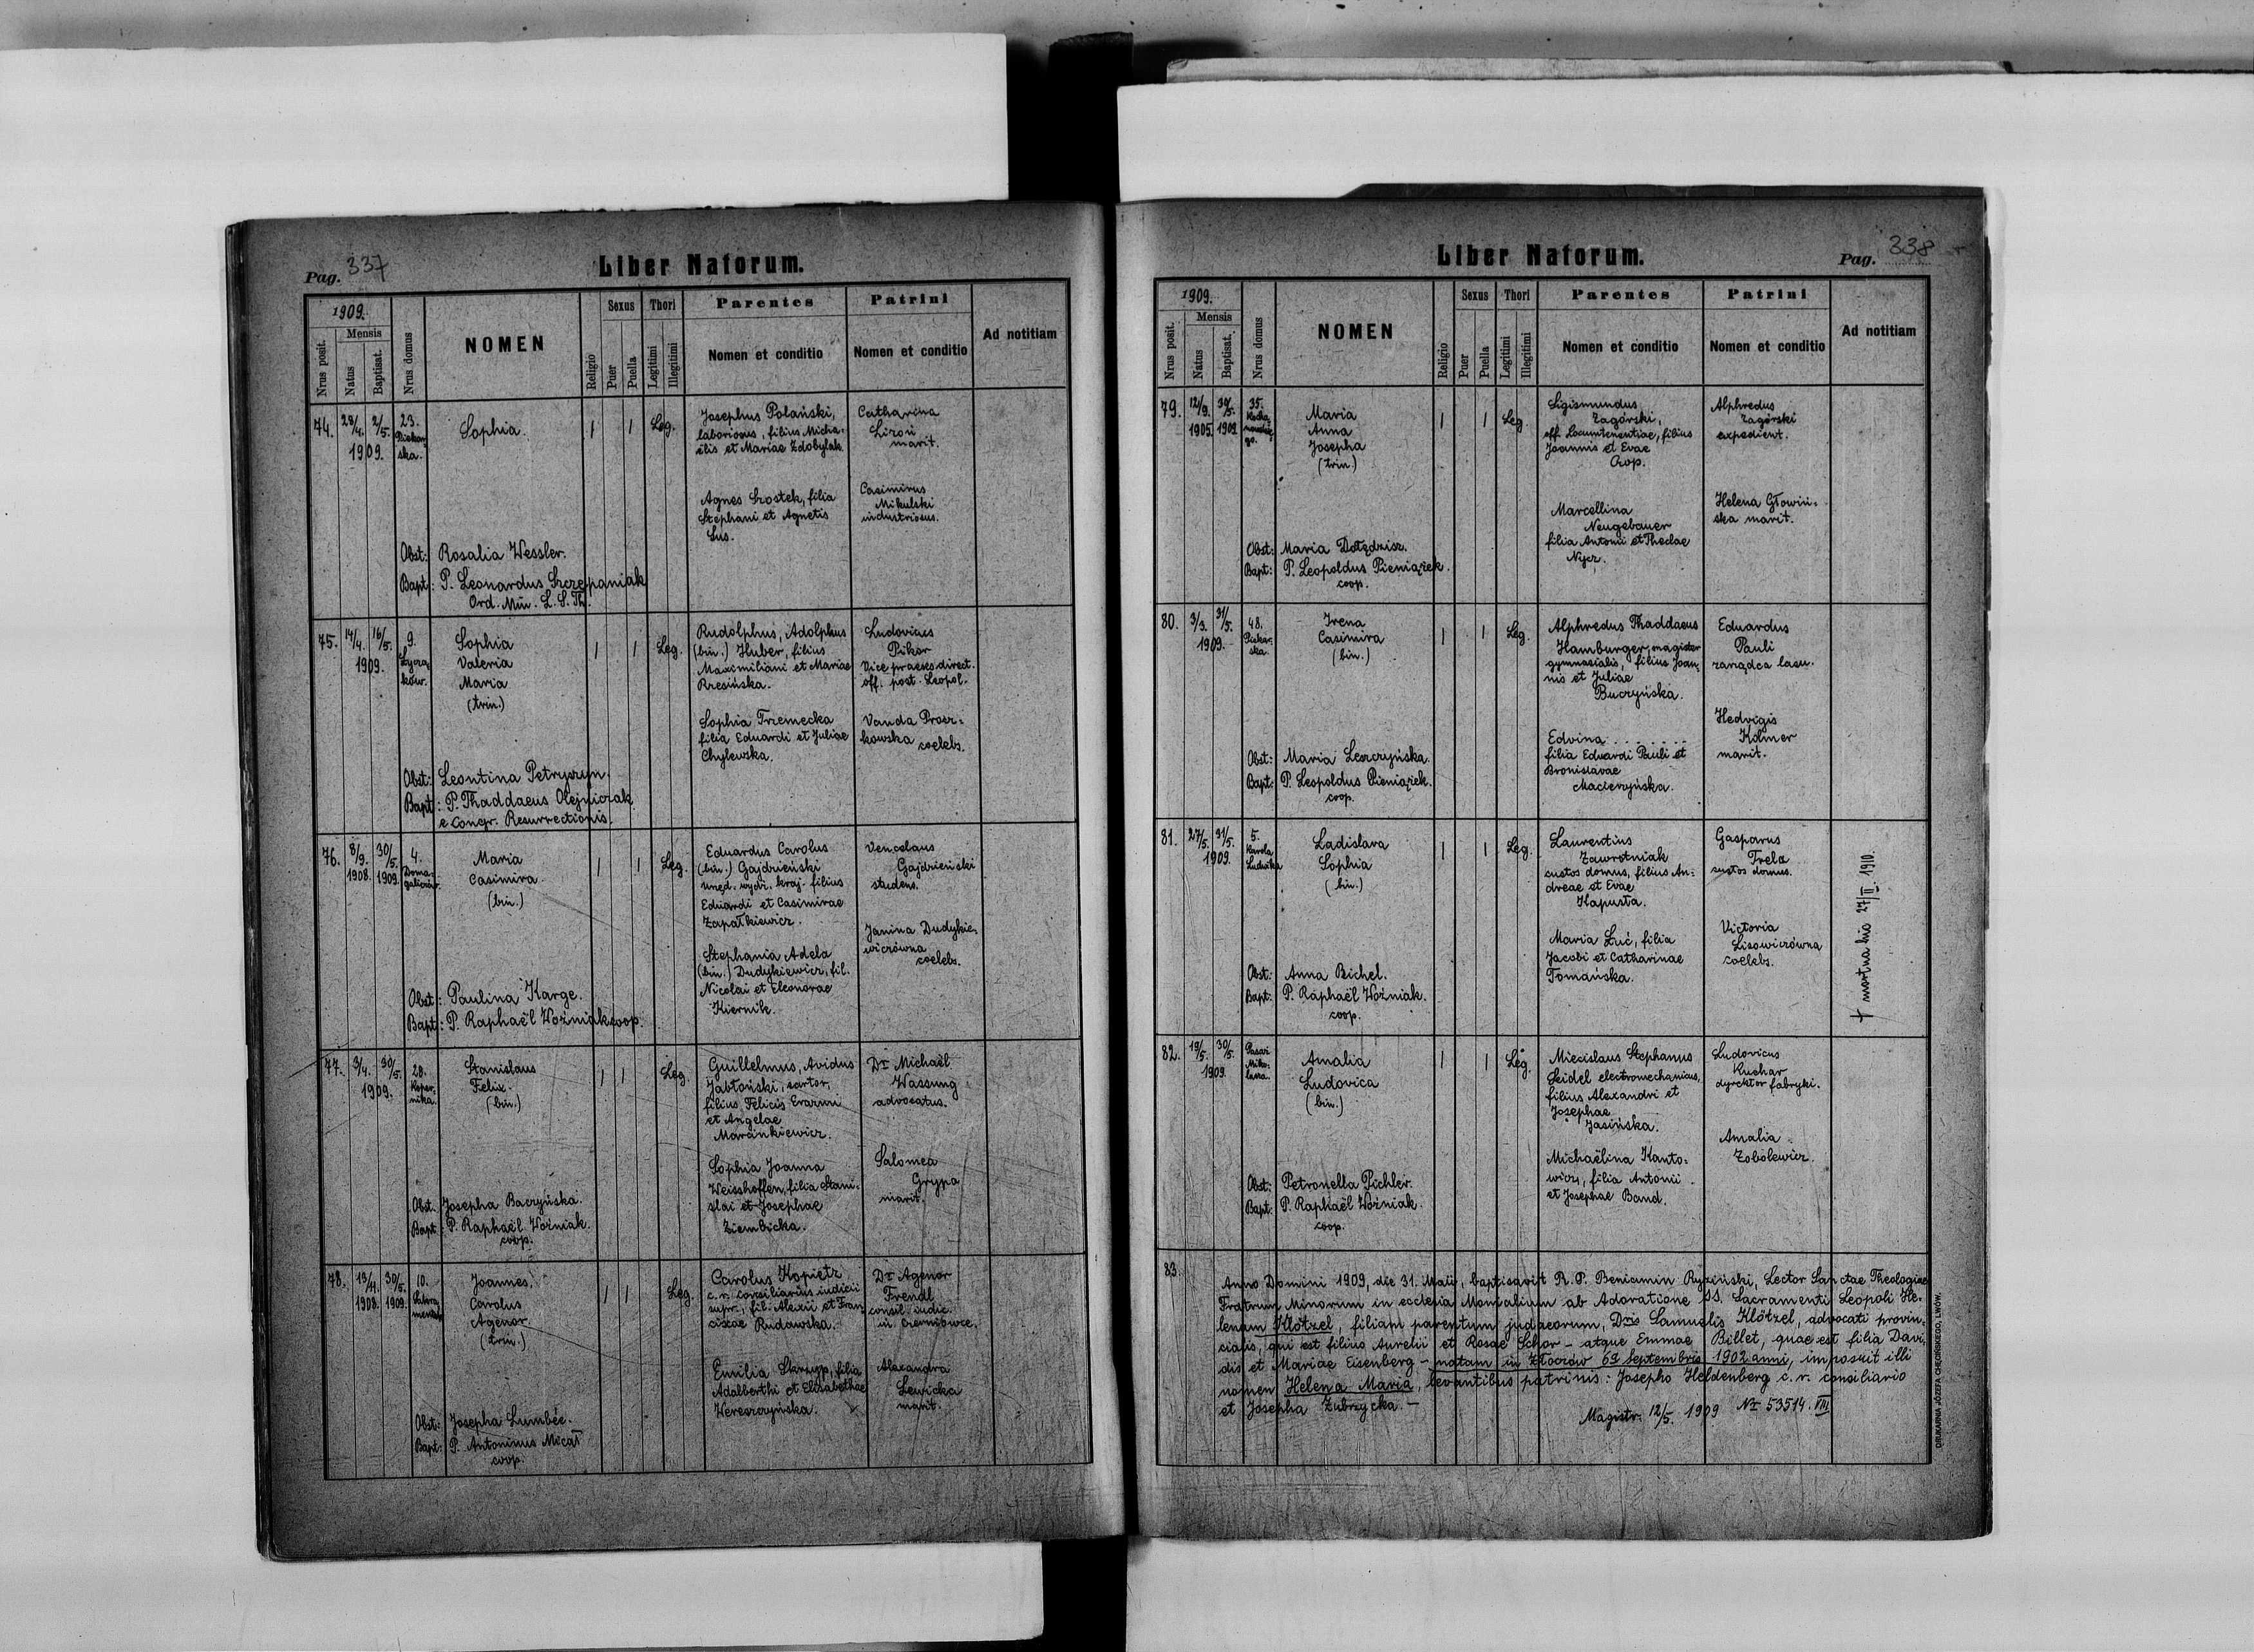 Pag. 337
Liber Natorum.
1909.
Nrus posit.
Mensis
Natus
Baptisat.
Nrus domus
NOMEN
Religio
Sexus
Puer
Puella
Thori
Legitimi
Illegitimi
Parentes
Nomen et conditio
Patrini
Nomen et conditio
Ad notitiam
74.
28/4. 2/5.
1909.
23.
Piekar-
ska.
Sophia.
1 1 Leg.
Josephus Polański,
laboriosus, filius Micha-
ëlis et Mariae Zdobylak.
Agnes Szostek, filia
Stephani et Agnetis
Sus.
Catharina
Lizoń
marit.
Casimirus
Mikulski
industriosus.
Obst: Rosalia Wessler.
Bapt: P. Leonardus Szczepaniak
Ord. Min. L. S. Th.
75.
14/4. 16/5.
1909.
9.
Łycza-
ków.
Sophia
Valeria
Maria
(trin.)
1 1 Leg.
Rudolphus, Adolphus
(bin.) Huber, filius
Maximiliani et Mariae
Rzesińska.
Sophia Trzemecka
filia Eduardi et Juliae
Chylewska.
Ludovicus
Pikor
Vice praeses direct.
off. post. Leopol.
Vanda Prosz-
kowska coelebs.
Obst: Leontina Petryszyn.
Bapt: P. Thaddaeus Olejniczak
e Congr. Resurrectionis.
76.
8/9. 30/5.
1908. 1909.
4.
Doma-
galiczów.
Maria
Casimira
(bin.)
1 1 Leg.
Eduardus Carolus
(bin.) Gajdzieński
urzęd. wydz. kraj. filius
Eduardi et Casimirae
Zapałkiewicz.
Stephania Adela
(bin.) Dudykiewicz, fil.
Nicolai et Eleonorae
Kiernik.
Venceslaus
Gajdzieński
studens.
Janina Dudykie-
wiczówna
coelebs.
Obst: Paulina Karge.
Bapt: P. Raphaël Woźniak coop.
77.
3/4. 30/5.
1909.
28.
Koper-
nika.
Stanislaus
Felix.
(bin.)
1 1 Leg.
Guillelmus, Avidus
Jabłoński, sartor,
filius Felicis Erazmi
et Angelae
Marcinkiewicz.
Sophia Joanna
Weisshoffen, filia Stani-
slai et Josephae
Ziembicka.
Dr Michaël
Wassung
advocatus.
Salomea
Grypa
marit.
Obst. Josepha Baczyńska.
Bapt: P. Raphaël Woźniak.
coop.
78.
13/11. 30/5.
1908. 1909.
10.
Joannes,
Carolus
Agenor.
(trin.)
1 1 Leg.
Carolus Kopietz
c. r. consiliarius iudicii
supr., fil. Alexii et Fran-
ciscae Rudawska.
Emilia Skrzyp, filia
Adalberthi et Elisabethae
Wereszczyńska.
Dr Agenor
Frendl
consil. iudic.
in Czerniowce.
Alexandra
Lewicka
marit.
Obst: Josepha Lumbée.
Bapt: P. Antoninus Micał
coop.
Liber Natorum.
Pag. 338
1909.
Nrus posit.
Mensis
Natus
Baptisat.
Nrus domus
NOMEN
Religio
Sexus
Puer
Puella
Thori
Legitimi
Illegitimi
Parentes
Nomen et conditio
Patrini
Nomen et conditio
Ad notitiam
79.
12/9. 30/5.
1905. 1909.
35.
Maria
Anna
Josepha
(trin.)
1 1 Leg.
Sigismundus
Zagórski,
off. Locumtenentiae, filius
Joannis et Evae
Czop.
Marcellina
Neugebauer
filia Antonii et Theclae
Nycz.
Alphredus
Zagórski
expedient.
Helena Głowiń-
ska marit.
Obst: Maria Dołędzisz.
Bapt: P. Leopoldus Pieniążek.
coop.
80.
3/3. 31/5.
1909.
48.
Piekar-
ska.
Irena
Casimira
(bin.)
1 1 Leg.
Alphredus Thaddaeus
Hamburger, magister
gymnasialis, filius Joan-
nis et Juliae
Buczyńska.
Edvina
filia Eduardi Pauli et
Bronislavae
Macierzyńska.
Eduardus
Pauli
zarządca lasu.
Hedvigis
Kolmer
marit.
Obst: Maria Leszczyńska.
Bapt: P. Leopoldus Pieniążek.
coop.
81.
27/5. 31/5.
1909.
5.
Karola
Ludwika
Ladislava
Sophia
(bin.)
1 1 Leg.
Laurentius
Zawrotniak
custos domus, filius An-
dreae et Evae
Kapusta.
Maria Łuć, filia
Jacobi et Catharinae
Tomańska.
Gasparus
Trela
custos domus.
Victoria
Lisowiczówna
coelebs.
† mortua hic 27/II 1910.
Obst: Anna Bichel.
Bapt: P. Raphaël Woźniak.
coop.
82.
19/5. 30/5.
1909.
Pasaż
Miko-
lasza.
Amalia
Ludovica
(bin.)
1 1 Leg.
Miecislaus Stephanus
Seidel electromechanicus,
filius Alexandri et
Josephae
Jasińska.
Michaëlina Kanto-
wicz, filia Antonii
et Josephae Band.
Ludovicus
Kuchar
dyrektor fabryki.
Amalia
Zobolewicz.
Obst: Petronella Pichler.
Bapt: P. Raphaël Woźniak.
coop.
83.
Anno Domini 1909, die 31. Maii, baptisavit R. P. Beniamin Ryziński, Lector Sanctae Theologiae
Fratrum Minorum in ecclesia Monialium ab Adoratione SS. Sacramenti Leopoli He-
lenam Klötzel, filiam parentum judaeorum, Dris Samuelis Klötzel, advocati provin-
cialis, qui est filius Aurelii et Rosae Schor – atque Emmae Billet, quae est filia Davi-
dis et Mariae Eisenberg – natam in Złoczów 6a Septembris 1902 anni, imposuit illi
nomen Helena Maria, levantibus patrinis: Josepho Heldenberg c. r. consiliario
et Josepha Zubrzycka. –
Magistr. 12/5. 1909 Nr 53514. VIII
DRUKARNIA JÓZEFA CHĘCIŃSKIEGO, LWÓW.